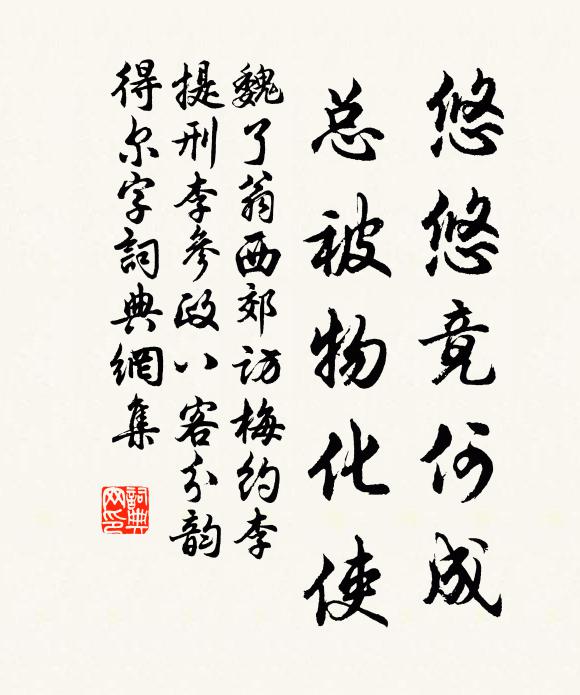 悠悠竟何成
总被物化使
魏了翁西郊访梅约李
提刑李參政八客分韵
得尔字詞典網集
詞典网印